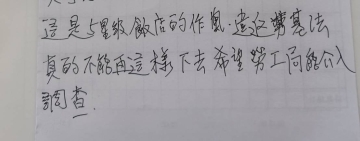 這是5星級飯店的作風.違反勞基法
真的不能再這樣下去希望勞工局能介入
調查.